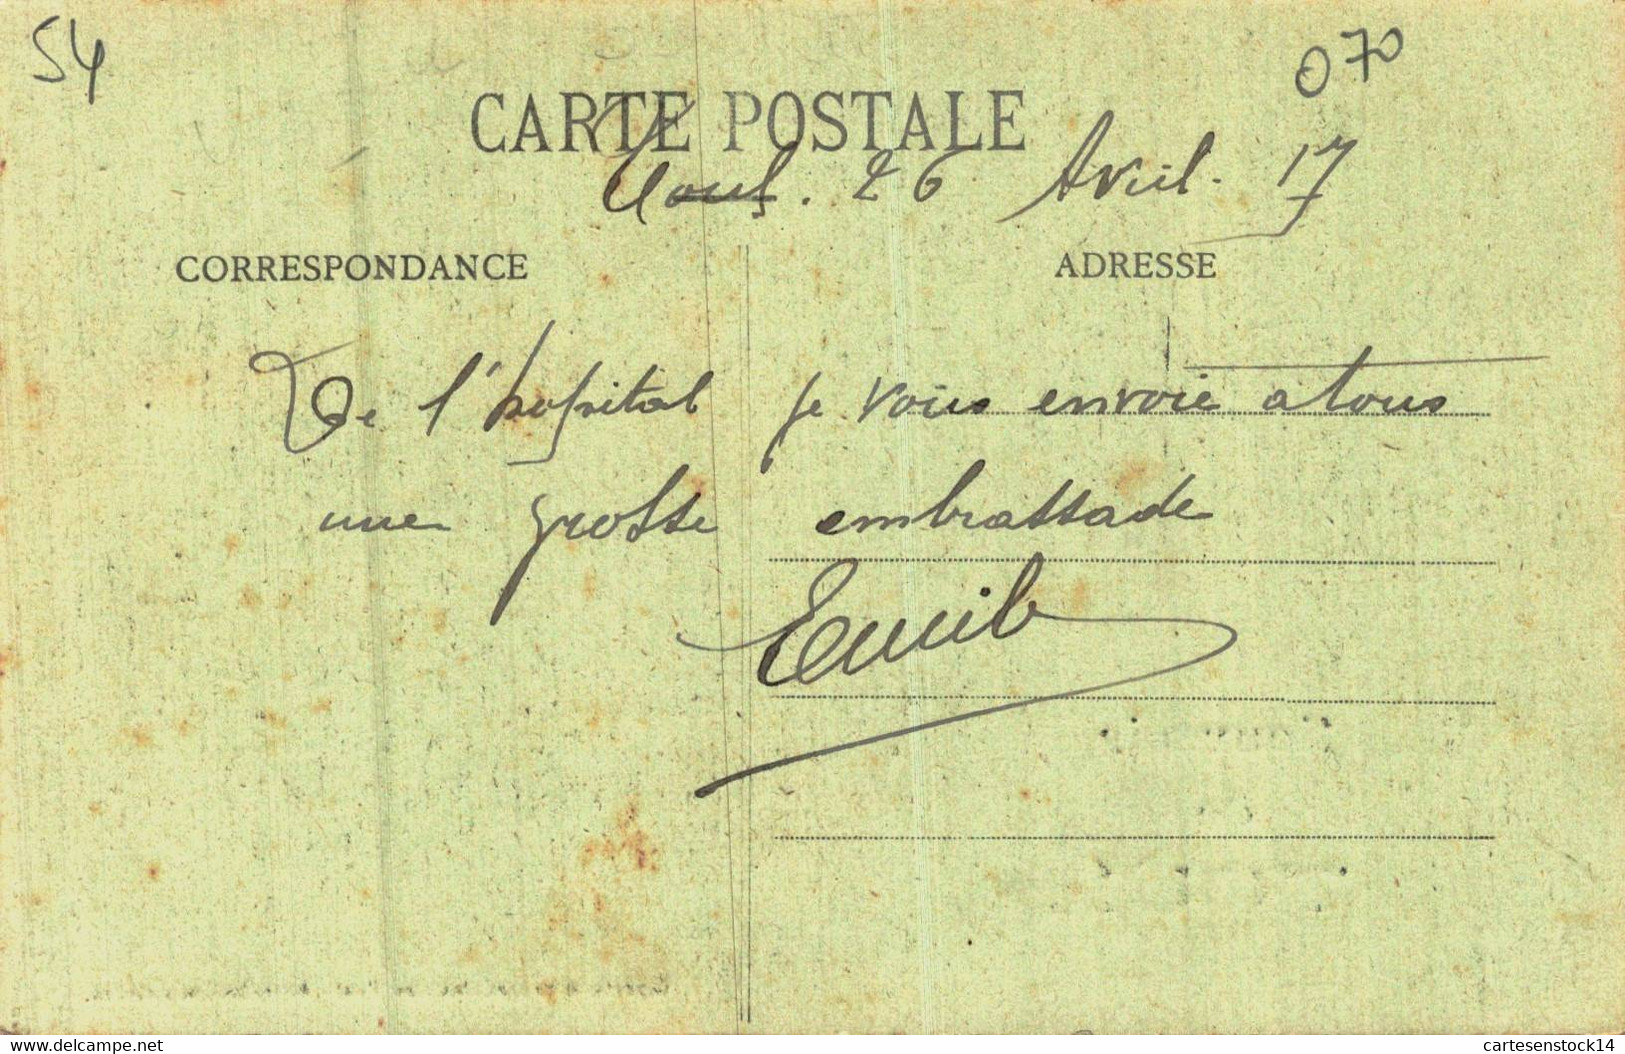 54
070
CARTE POSTALE
Toul. 26 Avril. 17
CORRESPONDANCE
ADRESSE
De l'hopital je vous envoie a tous
une grosse embrassade
Emile
delcampe.net
cartesenstock14